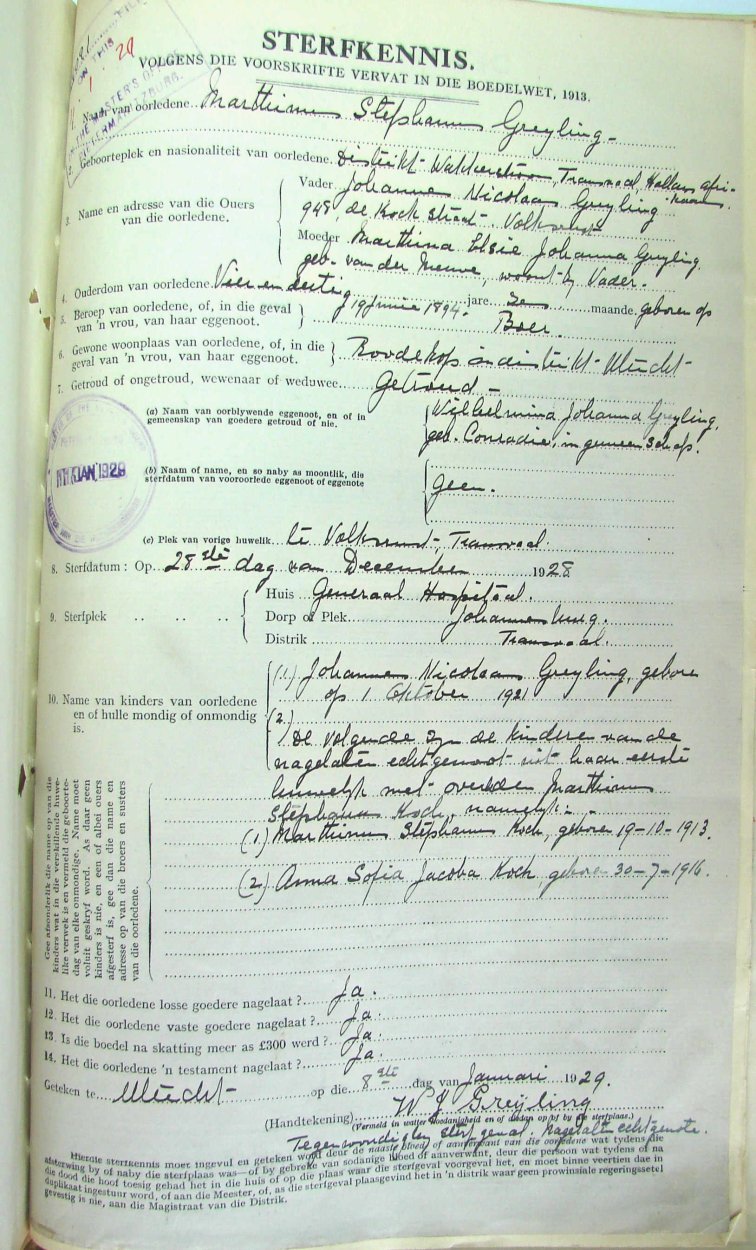 STERFKENNIS.
VOLGENS DIE VOORSKRIFTE VERVAT IN DIE BOEDELWET, 1913.
Naam van oorledene. Marthinus Stephanus Greyling
2. Geboorteplek en nasionaliteit van oorledene. Distrikt Wakkerstroom, Transvaal, Hollans afri-
kaans.
3. Name en adresse van die Ouers
van die oorledene.
Vader Johannes Nicolaas Greyling
948, de Kock straat Volksrust
Moeder Marthina Elsie Johanna Greyling
geb. van der Merwe, woont by Vader.
4. Ouderdom van oorledene. Vier en dertig jare maande. geboren op
19 Junie 1894.
5. Beroep van oorledene, of, in die geval
van 'n vrou, van haar eggenoot.
Boer.
6. Gewone woonplaas van oorledene, of, in die
geval van 'n vrou, van haar eggenoot.
Roodekop in distrikt Utrecht
7. Getroud of ongetroud, wewenaar of weduwee. Getroud
(a) Naam van oorblywende eggenoot, en of in
gemeenskap van goedere getroud of nie.
Wilhelmina Johanna Greyling,
geb. Conradie, in gemeenschap.
(b) Naam of name, en so naby as moontlik, die
sterfdatum van vooroorlede eggenoot of eggenote
Geen.
(c) Plek van vorige huwelik. te Volksrust, Transvaal.
8. Sterfdatum: Op 28ste dag van December 1928
9. Sterfplek
Huis Generaal Hospitaal.
Dorp of Plek Johannesburg.
Distrik Transvaal.
10. Name van kinders van oorledene
en of hulle mondig of onmondig
is.
(1) Johannes Nicolaas Greyling, gebore
op 1 Oktober 1921
(2)
De volgende zyn de kinderen van de
nagelaten echtgenoot uit haar eerste
huwelyk met overleden Marthinus
Stephanus Koch, namelyk:-
(1) Marthinus Stephanus Koch, geboren 19-10-1913.
(2) Anna Sofia Jacoba Koch, geboren 30-7-1916.
Gee afsonderlik die name op van die
kinders wat in die verskillende huwe-
like verwek is en vermeld die geboorte-
dag van elke onmondige. Name moet
voluit geskryf word. As daar geen
kinders is nie, en een of albei ouers
afgesterf is, gee dan die name en
adresse op van die broers en susters
van die oorledene.
11. Het die oorledene losse goedere nagelaat? Ja.
12. Het die oorledene vaste goedere nagelaat? Ja.
13. Is die boedel na skatting meer as £300 werd? Ja.
14. Het die oorledene 'n testament nagelaat? Ja.
Geteken te Utrecht op die 8ste dag van Januari 1929.
(Handtekening) W J Greyling
(Vermeld in watter hoedanigheid en of by die sterfplaas.)
Tegenwoordig by sterfgeval. Nagelate echtgenote.
Hierdie sterfkennis moet ingevul en geteken word deur die naaste bloed- of aanverwant van die oorledene wat tydens die
afsterwing by of naby die sterfplaas was—of by gebreke van sodanige bloed of aanverwant, deur die persoon wat tydens of na
die dood die hoof toesig gehad het in die huis of op die plaas waar die sterfgeval voorgeval het, en moet binne veertien dae in
duplikaat ingestuur word, of aan die Meester, of, as die sterfgeval plaasgevind het in 'n distrik waar geen provinsiale regeringssetel
gevestig is nie, aan die Magistraat van die Distrik.